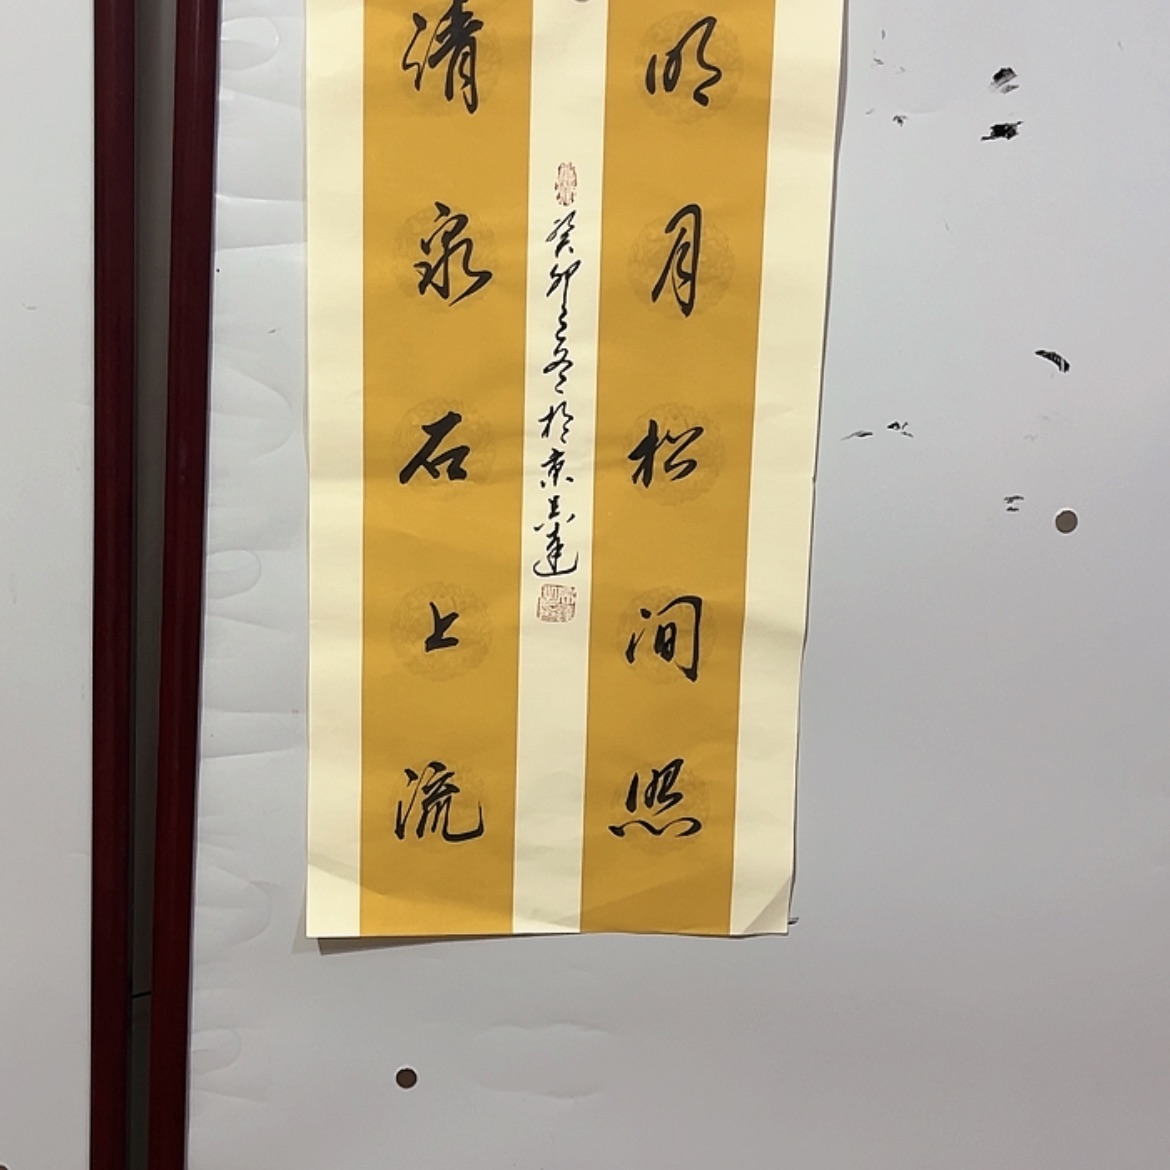 明月松间照
清泉石上流
癸卯之冬於京志达